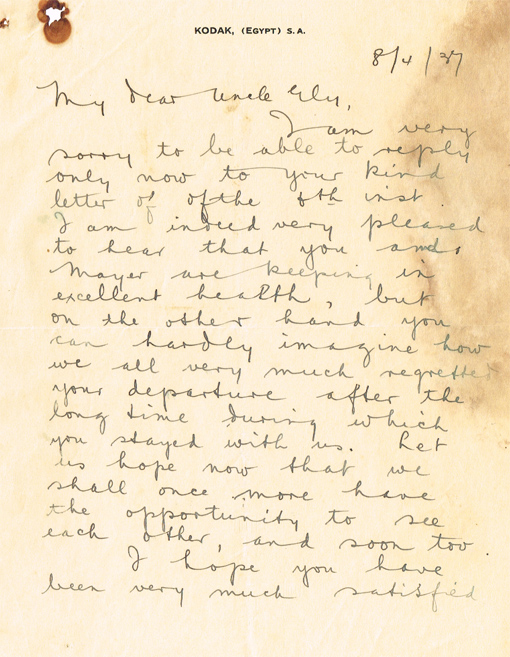 KODAK, (EGYPT) S.A.
8/4/37
My dear Uncle Ely,
I am very
sorry to be able to reply
only now to your kind
letter of of the 6th inst.
I am indeed very pleased
to hear that you and
Mayer are keeping in
excellent health, but
on the other hand you
can hardly imagine how
we all very much regretted
your departure after the
long time during which
you stayed with us. Let
us hope now that we
shall once more have
the opportunity to see
each other, and soon too.
I hope you have
been very much satisfied